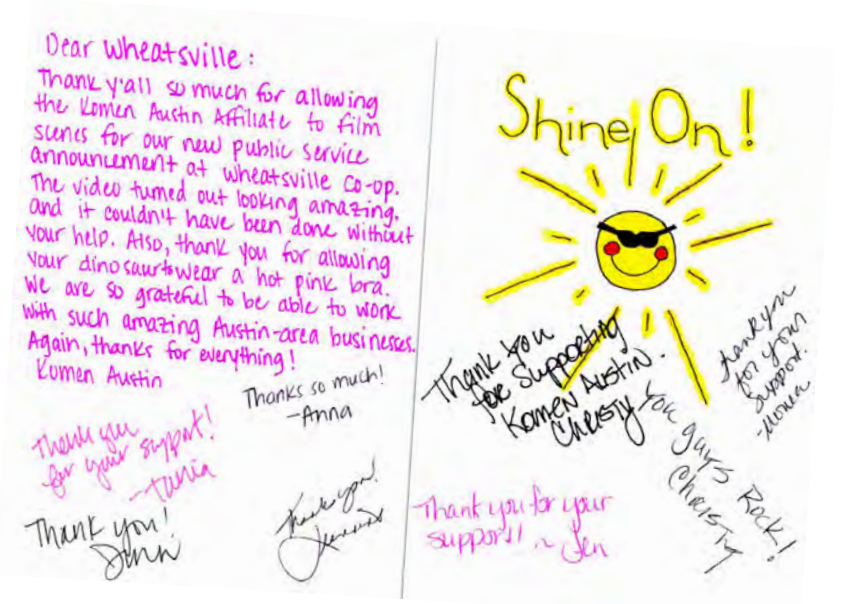 Dear Wheatsville:
Thank y'all so much for allowing
the Komen Austin Affiliate to film
scenes for our new public service
announcement at Wheatsville Co-op.
The video turned out looking amazing.
and it couldn't have been done without
your help. Also, thank you for allowing
your dinosaur to wear a hot pink bra.
We are so grateful to be able to work
with such amazing Austin-area businesses.
Again, thanks for everything!
Komen Austin
Thanks so much!
-Anna
Thank you
for your support!
-Tania
Thank you!
Thank you!
Shine On!
Thank you
for supporting
Komen Austin.
Christy
Thank you
for your
support.
You guys Rock!
Christy
Thank you for your
support!! ~ Jen